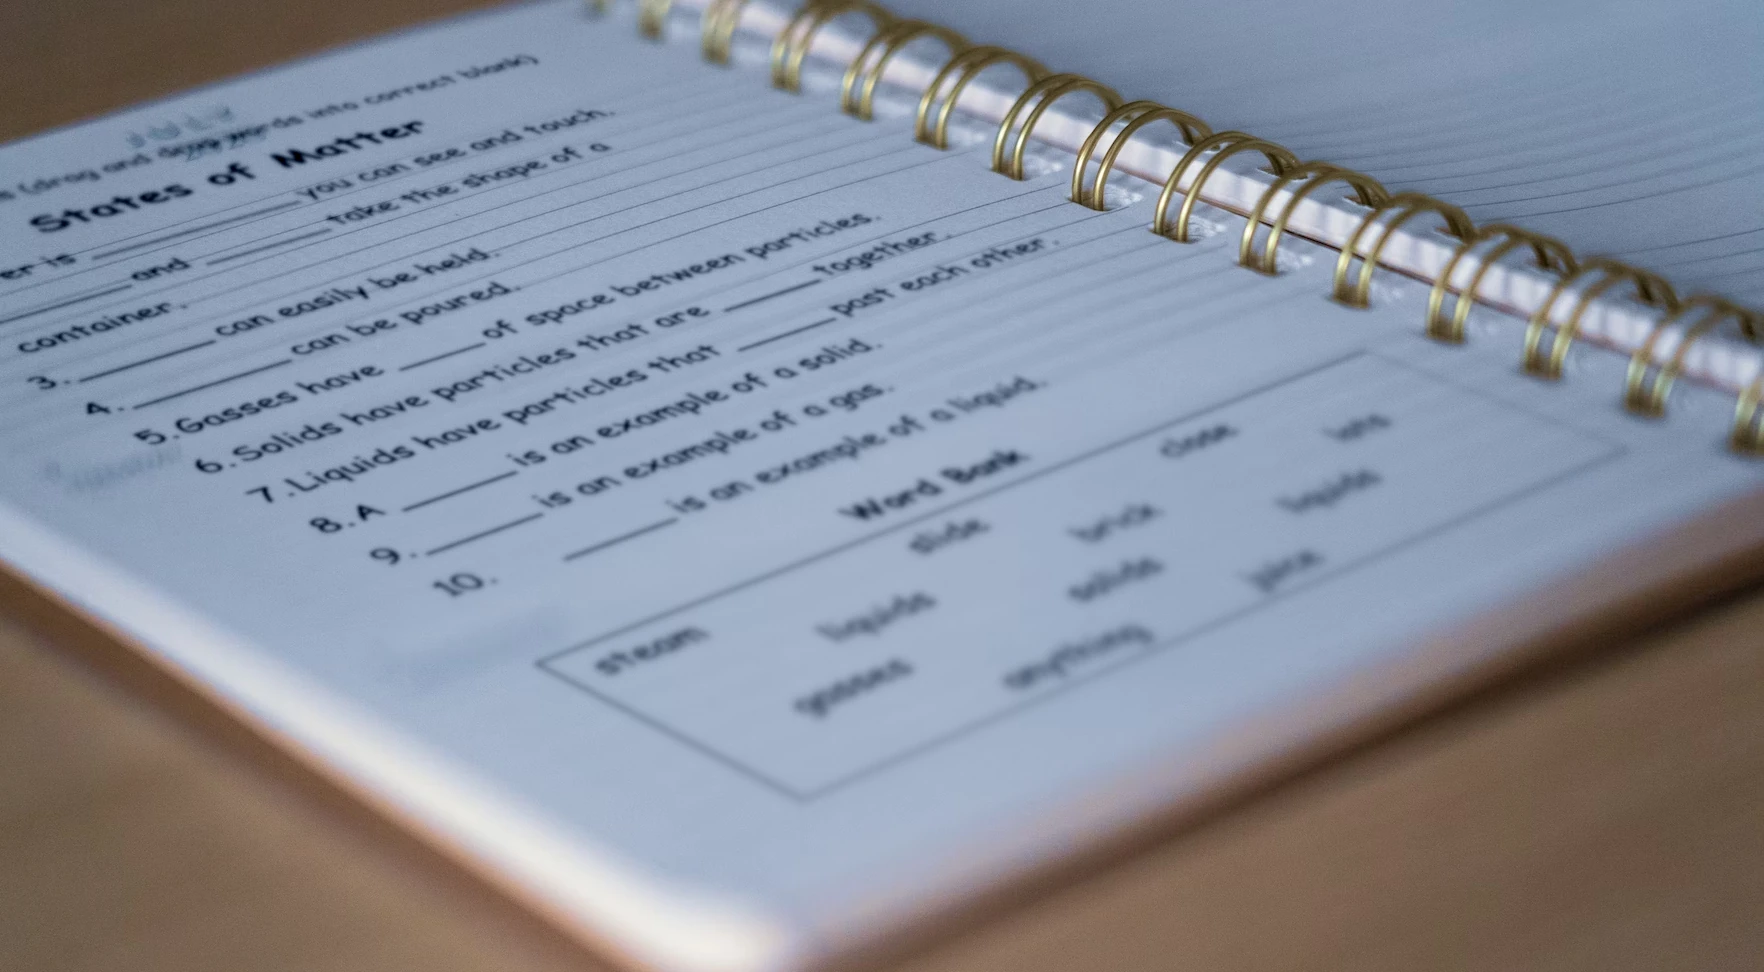 JULY
(drag and drop words into correct blank)
States of Matter
er is ____________ you can see and touch.
______ and ________ take the shape of a
container.
3. ________ can easily be held.
4. __________ can be poured.
5. Gasses have ______ of space between particles.
6. Solids have particles that are ______ together.
7. Liquids have particles that ______ past each other.
8. A ________ is an example of a solid.
9. ________ is an example of a gas.
10. ________ is an example of a liquid.
Word Bank
steam slide close lots
liquids brick liquids
gasses solids juice
anything